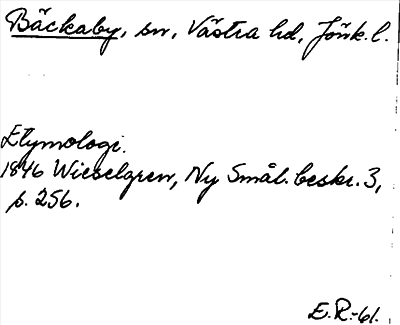 Bäckaby, sn, Västra hd, Jönk. l.
Etymologi.
1846 Wieselgren, Ny Smål. beskr. 3,
p. 256.
E.R.-61.